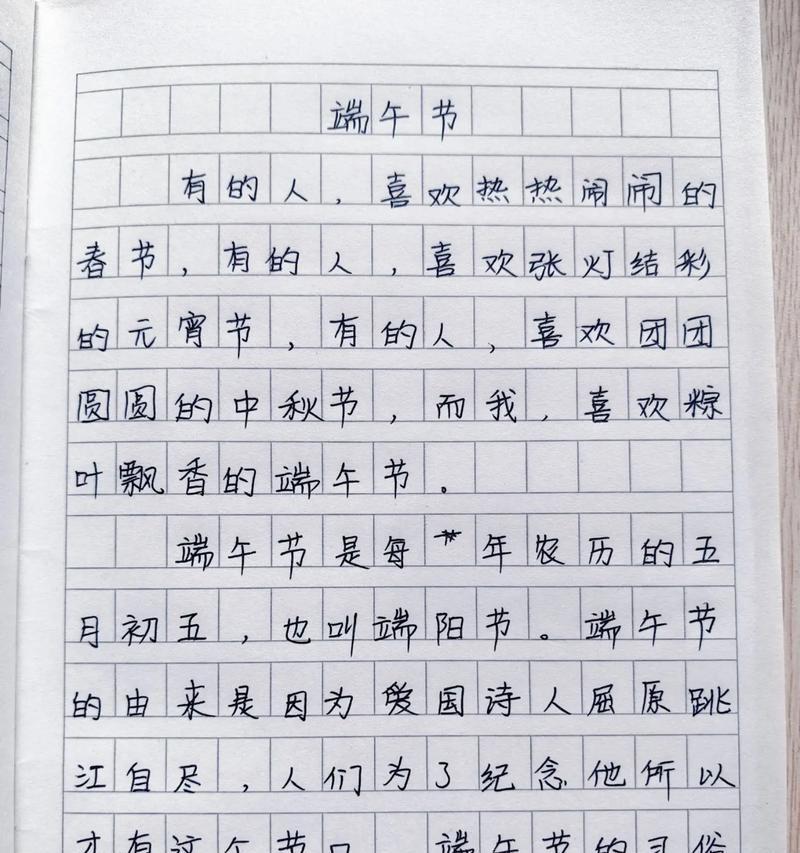 端午节
有的人，喜欢热热闹闹的
春节，有的人，喜欢张灯结彩
的元宵节，有的人，喜欢团团
圆圆的中秋节，而我，喜欢粽
叶飘香的端午节。
端午节是每年农历的五
月初五，也叫端阳节。端午节
的由来是因为爱国诗人屈原跳
江自尽，人们为了纪念他所以
才有这个节日。端午节的习俗